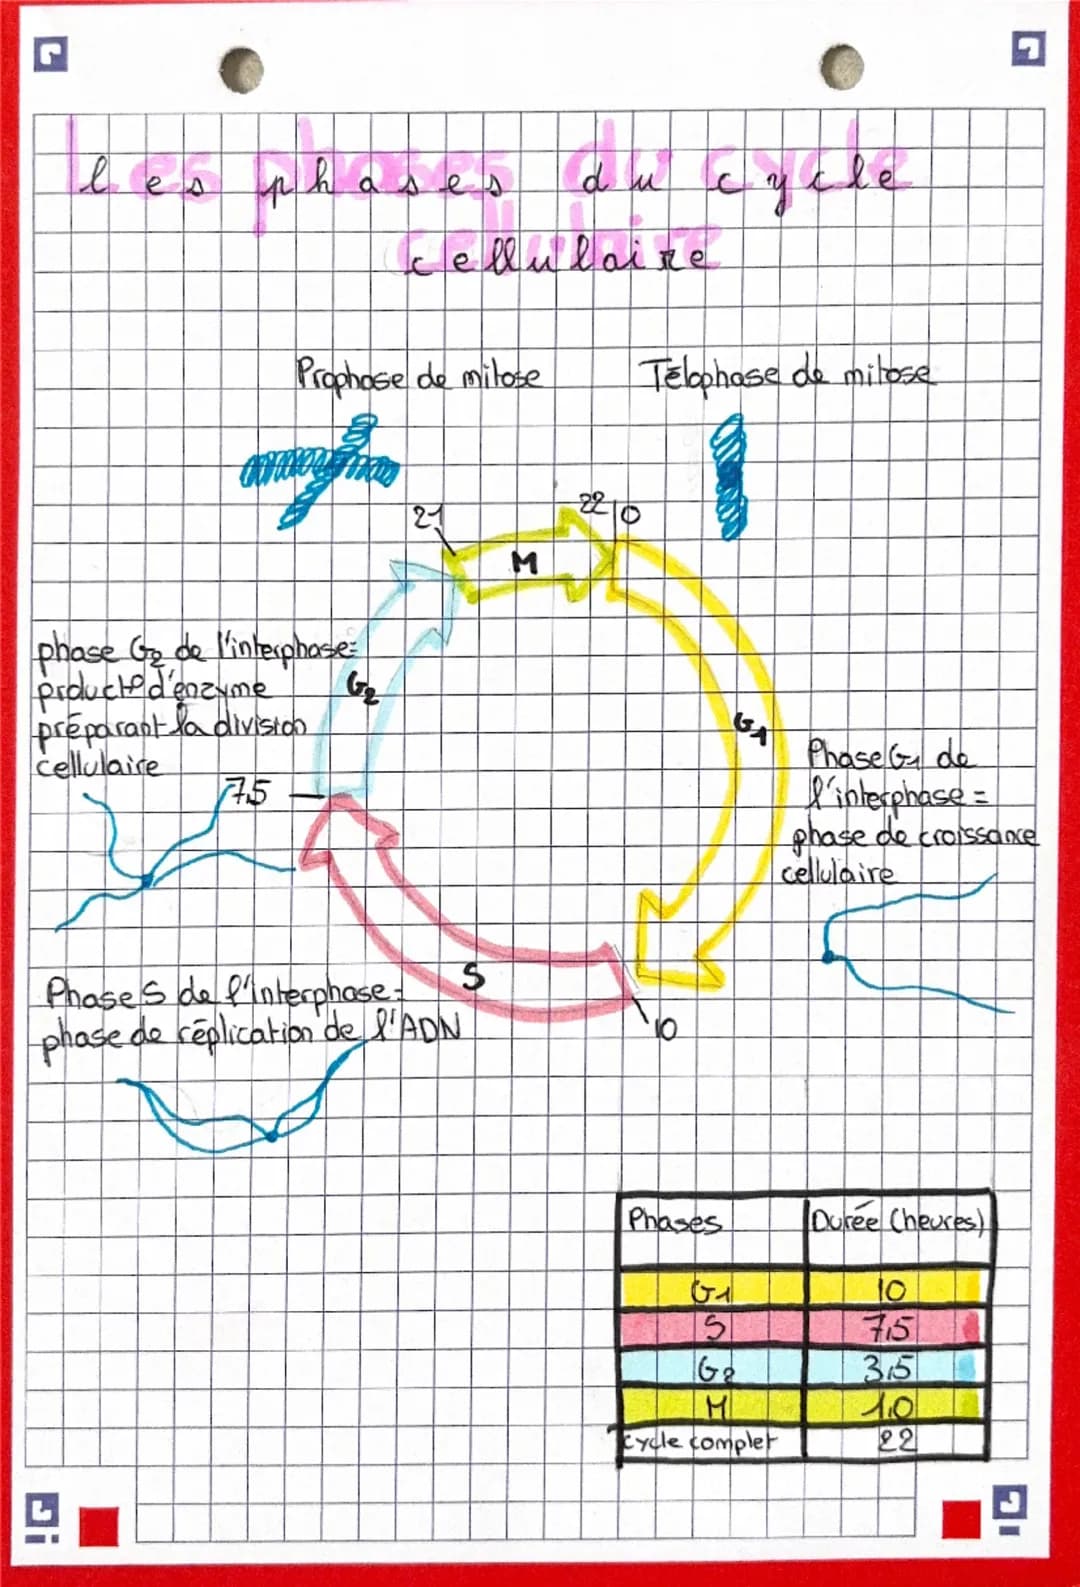 Les phases du cycle
cellulaire
Prophase de mitose
Télophase de mitose
21
22
0
M
phase G2 de l'interphase=
product° d'enzyme
préparant la division
cellulaire
G2
G1
Phase G1 de
l'interphase =
phase de croissance
cellulaire
7,5
S
10
Phase S de l'interphase=
phase de réplication de l'ADN
Phases Durée (heures)
G1 10
S 7,5
G2 3,5
M 1,0
cycle complet 22